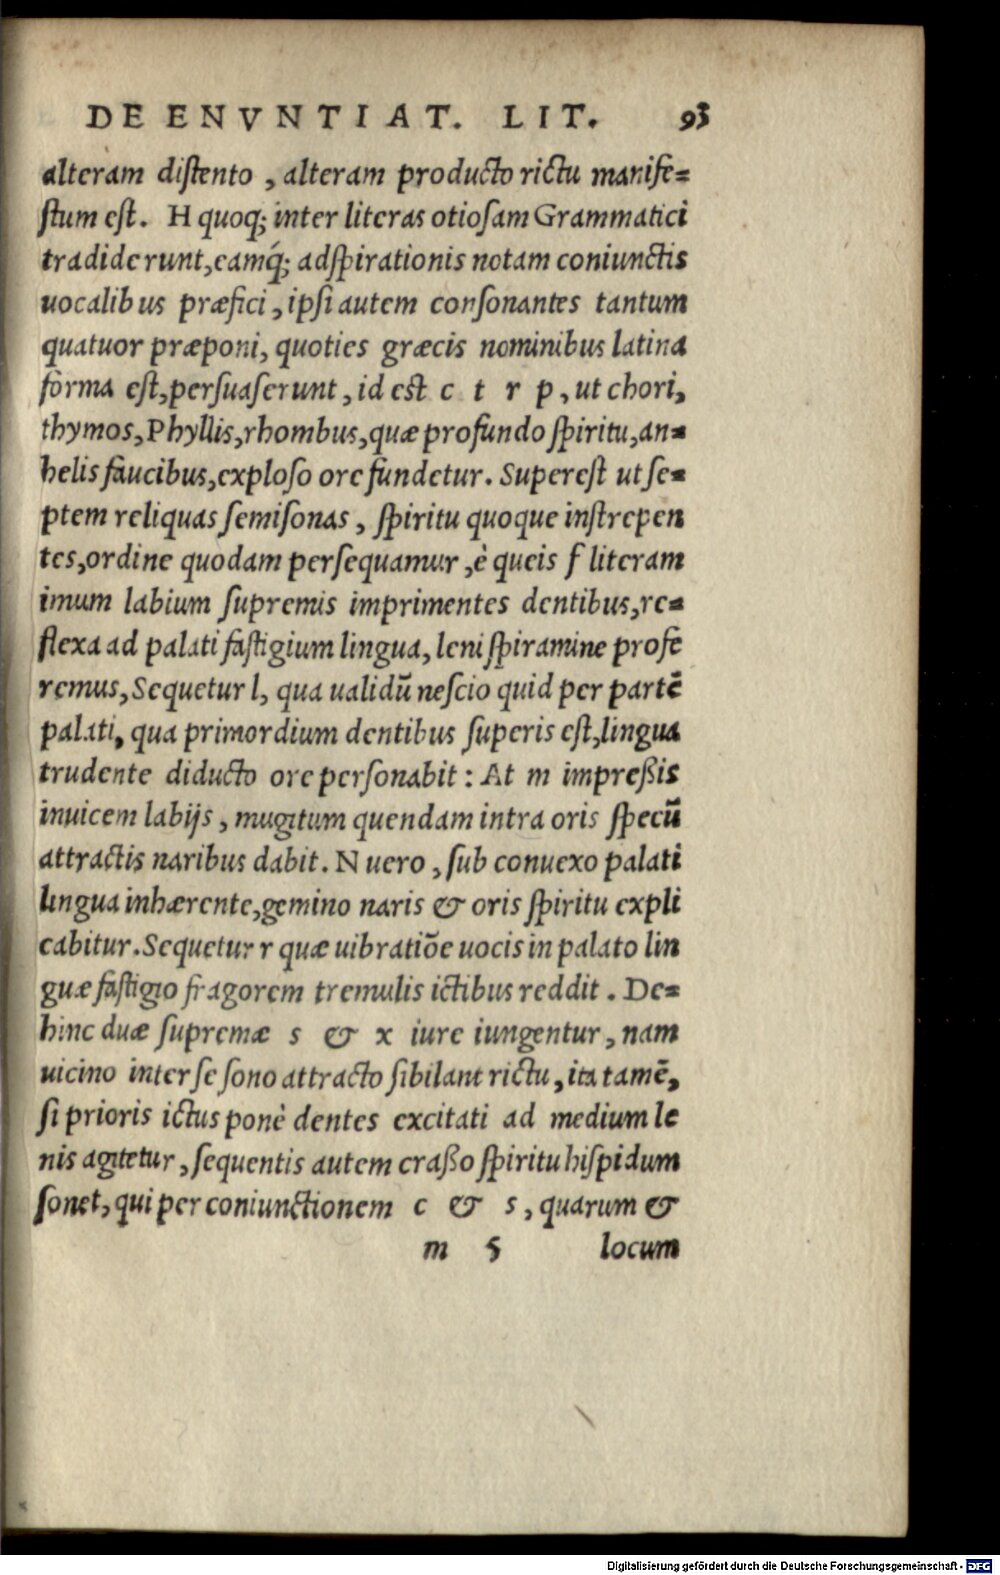 DE ENVNTIAT. LIT. 93
alteram distento, alteram producto rictu manife=
stum est. H quoq; inter literas otiosam Grammatici
tradiderunt, eamq́; adspirationis notam coniunctis
uocalibus præfici, ipsi autem consonantes tantum
quatuor præponi, quoties græcis nominibus latina
forma est, persuaserunt, id est c t r p, ut chori,
thymos, Phyllis, rhombus, quæ profundo spiritu, an=
helis faucibus, exploso ore fundetur. Superest ut se=
ptem reliquas semisonas, spiritu quoque instrepen
tes, ordine quodam persequamur, è queis f literam
imum labium supremis imprimentes dentibus, re=
flexa ad palati fastigium lingua, leni spiramine profe
remus, Sequetur l, qua ualidū nescio quid per partē
palati, qua primordium dentibus superis est, lingua
trudente diducto ore personabit: At m impreßis
inuicem labijs, mugitum quendam intra oris specū
attractis naribus dabit. N uero, sub conuexo palati
lingua inhærente, gemino naris & oris spiritu expli
cabitur. Sequetur r quæ uibratiõe uocis in palato lin
guæ fastigio fragorem tremulis ictibus reddit. De=
hinc duæ supremæ s & x iure iungentur, nam
uicino inter se sono attracto sibilant rictu, ita tamē,
si prioris ictus ponè dentes excitati ad medium le
nis agitetur, sequentis autem craßo spiritu hispidum
sonet, qui per coniunctionem c & s, quarum &
m 5 locum
Digitalisierung gefördert durch die Deutsche Forschungsgemeinschaft - DFG